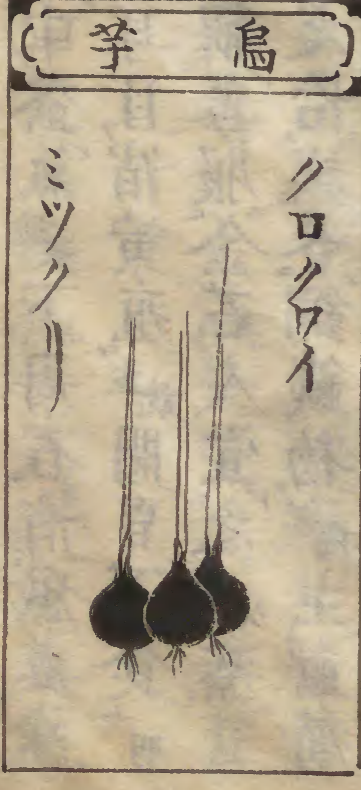 烏芋
クロクワイ
ミツクリ